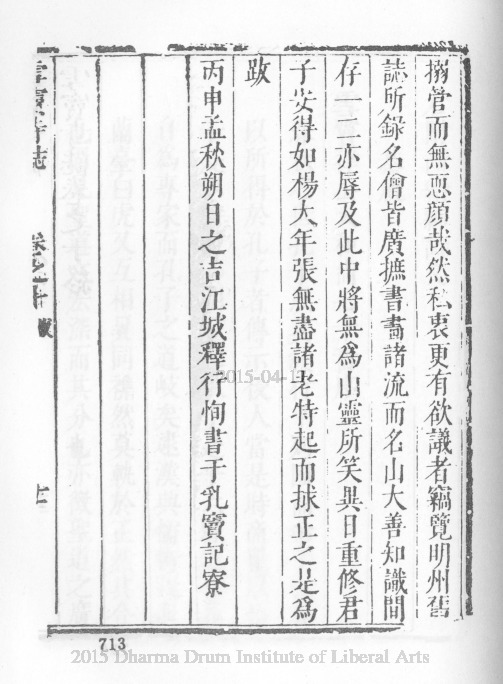 搦管而無恧顏哉然私衷更有欲議者竊覽明州舊
誌所錄名僧皆廣摭書畵諸流而名山大善知識間
存一二亦辱及此中將無為山靈所笑異日重修君
子安得如楊大年張無盡諸老特起而捄正之是為
跋
丙申孟秋朔日之吉江城釋行恂書于乳竇記寮
雪竇寺誌 卷之十 跋
713
2015-04-1
2015 Dharma Drum Institute of Liberal Arts